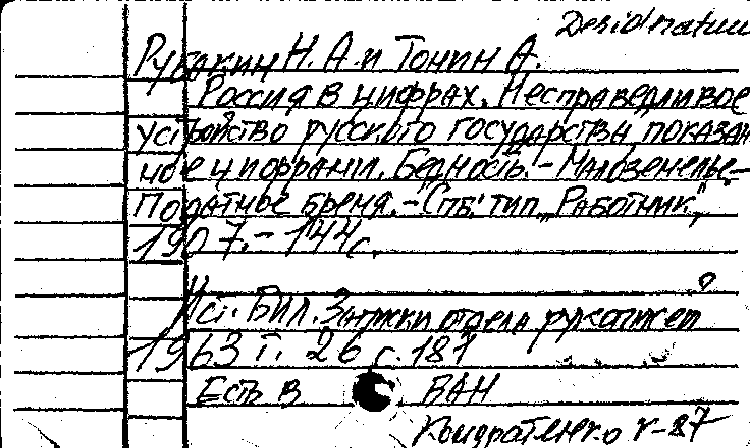 Desideratum
Рубакин Н. А. и Тонин А.
Россия в цифрах. Несправедливое
устройство русского государства показан
ное цифрами. Бедность. - Малоземелье -
Податное бремя. - Спб: тип. "Работник",
1907. - 144 с.
Ист. Бил. Записки отдела рукописей
1963 г. 26 с. 187
Есть в БАН